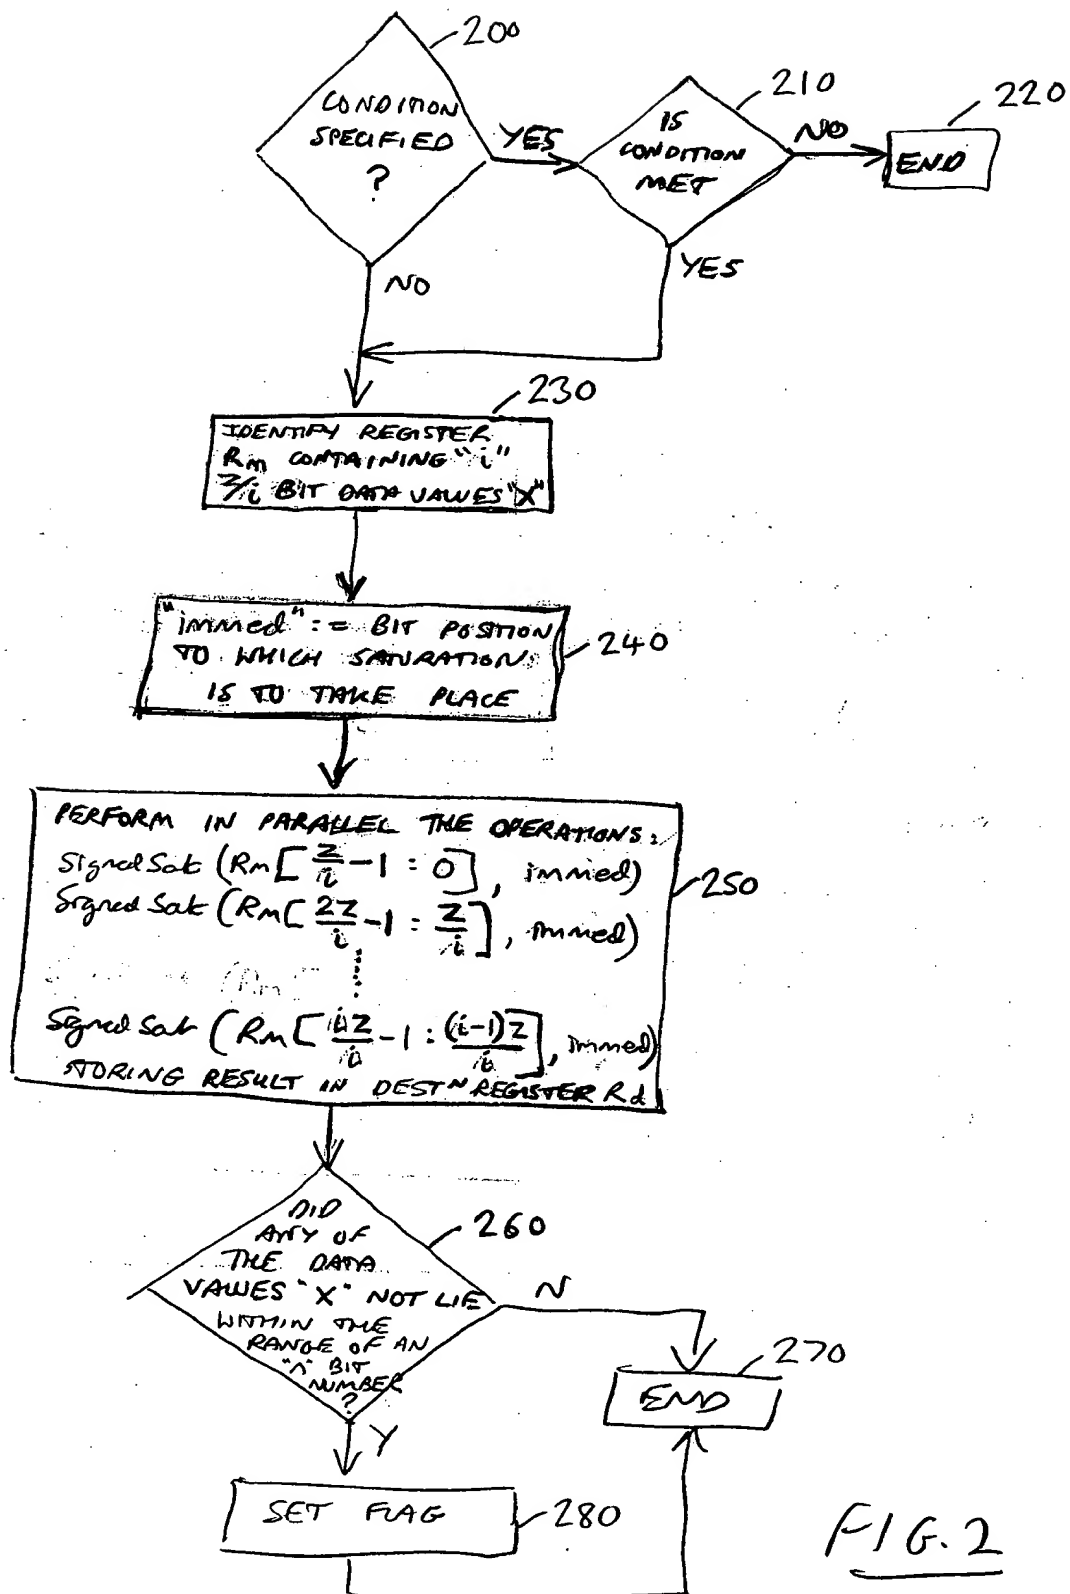 200
CONDITION
SPECIFIED
?
YES
210
IS
CONDITION
MET
NO
220
END
NO
YES
230
IDENTIFY REGISTER
Rm CONTAINING "i"
Z/i BIT DATA VALUES "X"
"immed" := BIT POSITION
TO WHICH SATURATION
IS TO TAKE PLACE
240
PERFORM IN PARALLEL THE OPERATIONS:
Signed Sat (Rm[Z/i - 1 : 0], immed)
Signed Sat (Rm[2Z/i - 1 : Z/i], immed)
250
Signed Sat (Rm[iZ/i - 1 : (i-1)Z/i], immed)
STORING RESULT IN DESTN REGISTER Rd
260
DID
ANY OF
THE DATA
VALUES "X" NOT LIE
WITHIN THE
RANGE OF AN
"n" BIT
NUMBER
?
N
270
END
Y
SET FLAG
280
FIG. 2